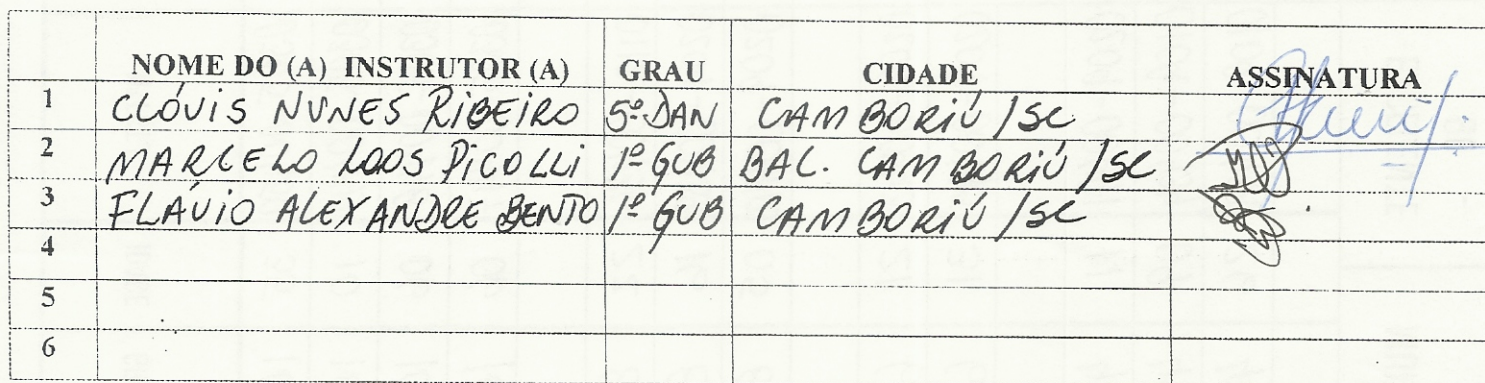 NOME DO (A) INSTRUTOR (A) GRAU CIDADE ASSINATURA
1 CLÓVIS NUNES RIBEIRO 5º DAN CAMBORIÚ /SC
2 MARCELO LOOS PICOLLI 1º GUB BAL. CAMBORIÚ /SC
3 FLÁVIO ALEXANDRE BENTO 1º GUB CAMBORIÚ /SC
4
5
6